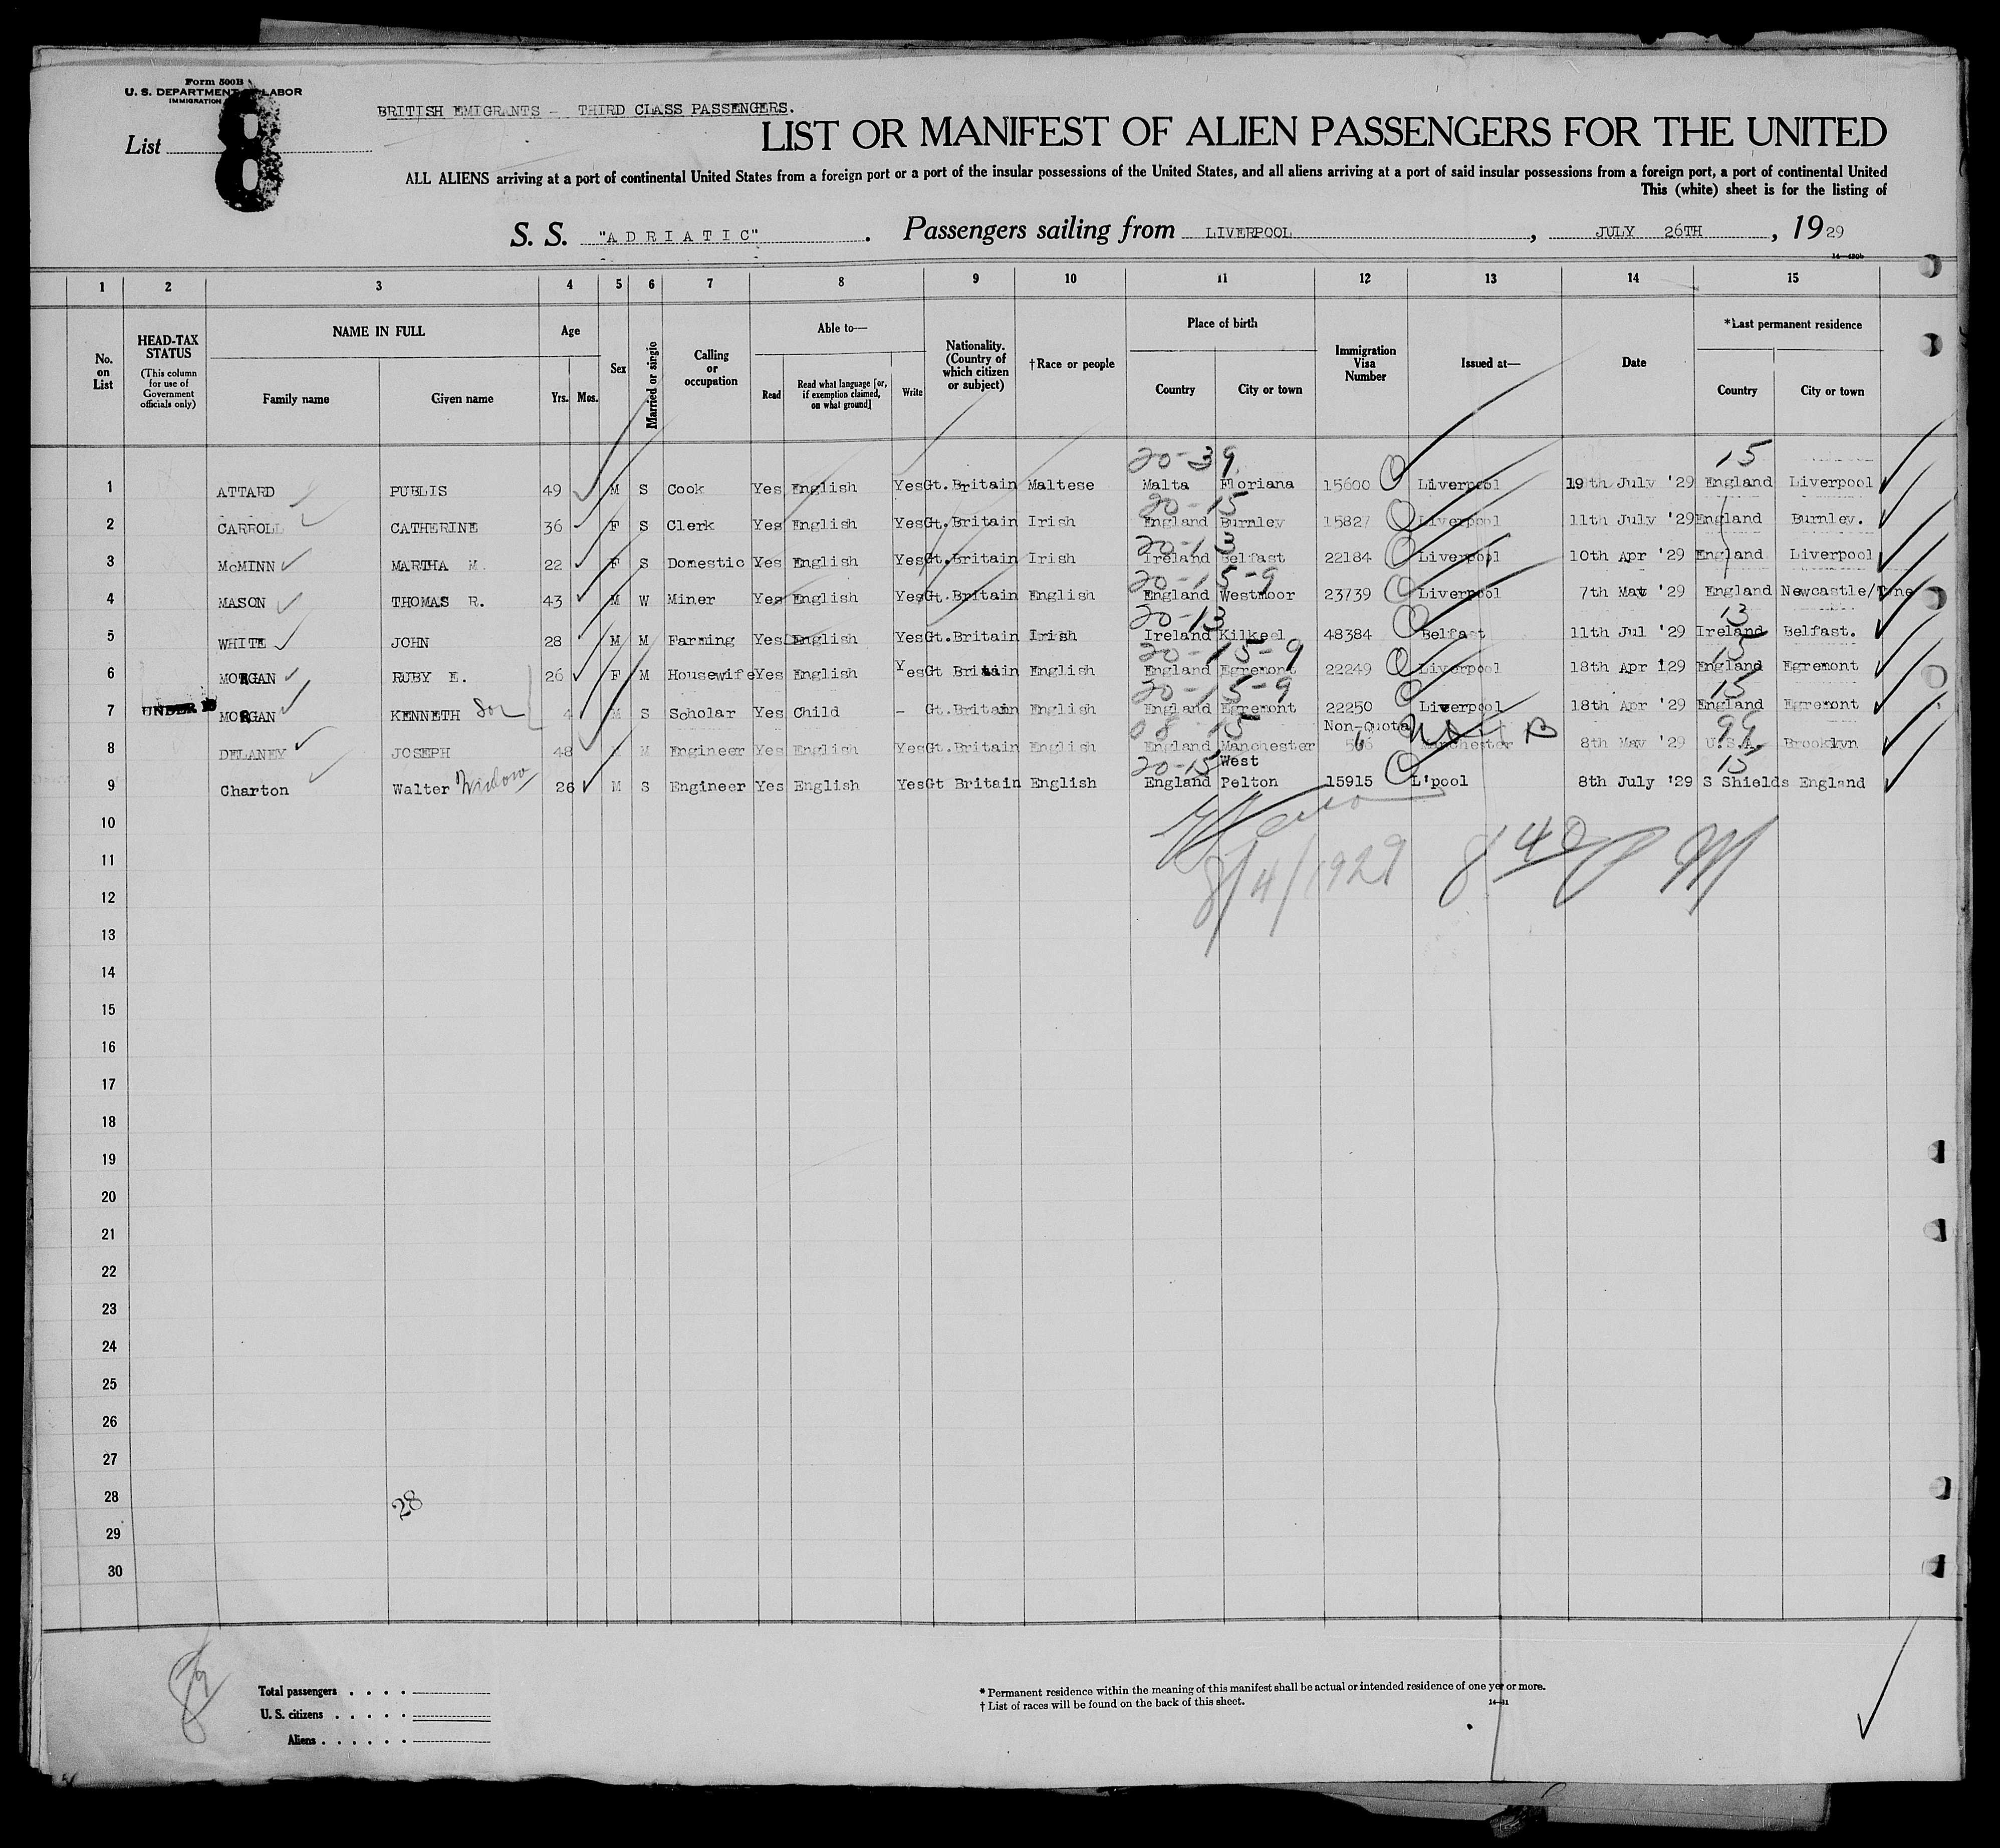 Form 500B
U. S. DEPARTMENT OF LABOR
IMMIGRATION
BRITISH EMIGRANTS - THIRD CLASS PASSENGERS.
List 8
LIST OR MANIFEST OF ALIEN PASSENGERS FOR THE UNITED
ALL ALIENS arriving at a port of continental United States from a foreign port or a port of the insular possessions of the United States, and all aliens arriving at a port of said insular possessions from a foreign port, a port of continental United
This (white) sheet is for the listing of
S. S. "ADRIATIC". Passengers sailing from LIVERPOOL, JULY 26TH, 1929
1 2 3 4 5 6 7 8 9 10 11 12 13 14 15
No. on List
HEAD-TAX STATUS
(This column for use of Government officials only)
NAME IN FULL
Family name Given name
Age
Yrs. Mos.
Sex
Married or single
Calling or occupation
Able to—
Read Read what language [or, if exemption claimed, on what ground] Write
Nationality. (Country of which citizen or subject)
†Race or people
Place of birth
Country City or town
Immigration Visa Number
Issued at—
Date
*Last permanent residence
Country City or town
20-39 15
1 ATTARD PUBLIS 49 M S Cook Yes English Yes Gt.Britain Maltese Malta Floriana 15600 Liverpool 19th July '29 England Liverpool
20-15
2 CARROLL CATHERINE 36 F S Clerk Yes English Yes Gt.Britain Irish England Burnley 15827 Liverpool 11th July '29 England Burnley.
20-13
3 McMINN MARTHA M. 22 F S Domestic Yes English Yes Gt.Britain Irish Ireland Belfast 22184 Liverpool 10th Apr '29 England Liverpool
20-15-9
4 MASON THOMAS R. 43 M W Miner Yes English Yes Gt.Britain English England Westmoor 23739 Liverpool 7th Mat '29 England Newcastle/Tyne
20-13 13
5 WHITE JOHN 28 M M Farming Yes English Yes Gt.Britain Irish Ireland Kilkeel 48384 Belfast 11th Jul '29 Ireland Belfast.
20-15-9 15
6 MORGAN RUBY E. 26 F M Housewife Yes English Yes Gt Britain English England Egremont 22249 Liverpool 18th Apr 129 England Egremont
20-15-9 15
7 UNDER 16 MORGAN KENNETH Son 4 M S Scholar Yes Child - Gt.Britain English England Egremont 22250 Liverpool 18th Apr '29 England Egremont
08 15 Non-Quota 99
8 DELANEY JOSEPH 48 M Engineer Yes English Yes Gt.Britain English England Manchester Manchester B 8th May '29 U.S.A. Brooklyn
20-15 West 15
9 Charton Walter Widow 26 M S Engineer Yes English Yes Gt Britain English England Pelton 15915 L'pool 8th July '29 S Shields England
10
8/4/1929
11
12
13
14
15
16
17
18
19
20
21
22
23
24
25
26
27
28 28
29
30
Total passengers
U. S. citizens
Aliens
* Permanent residence within the meaning of this manifest shall be actual or intended residence of one year or more.
† List of races will be found on the back of this sheet.